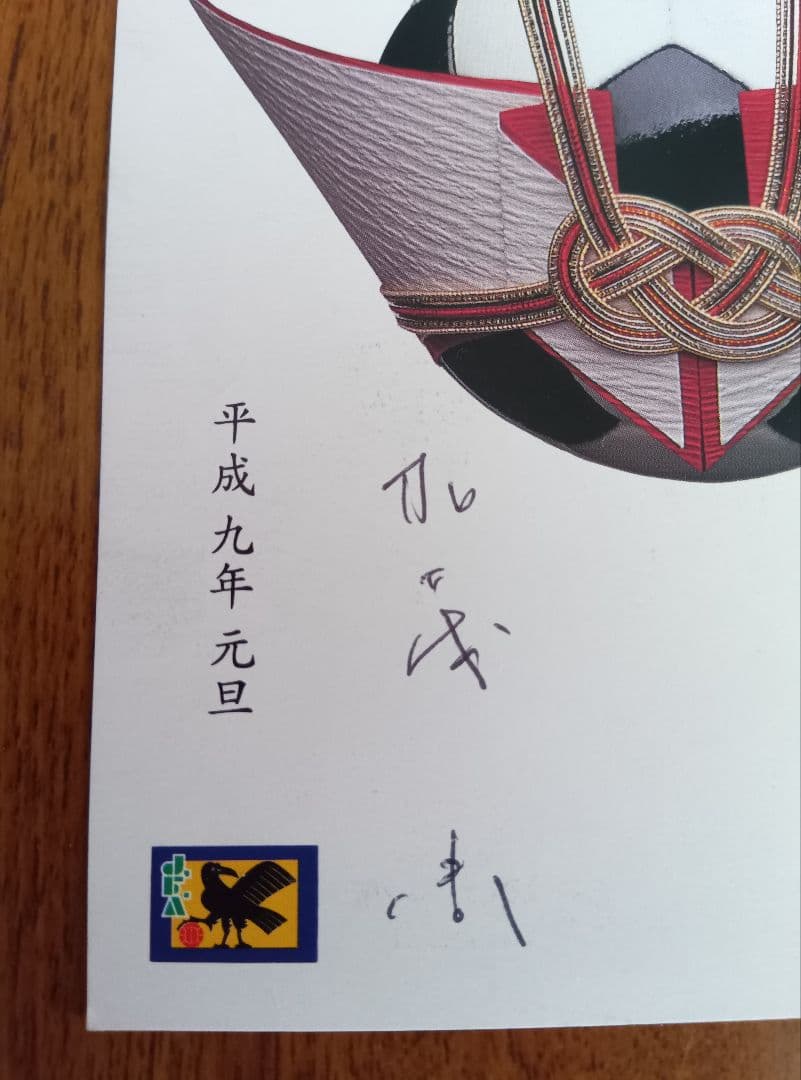 加茂 周
平成九年元旦
J.F.A